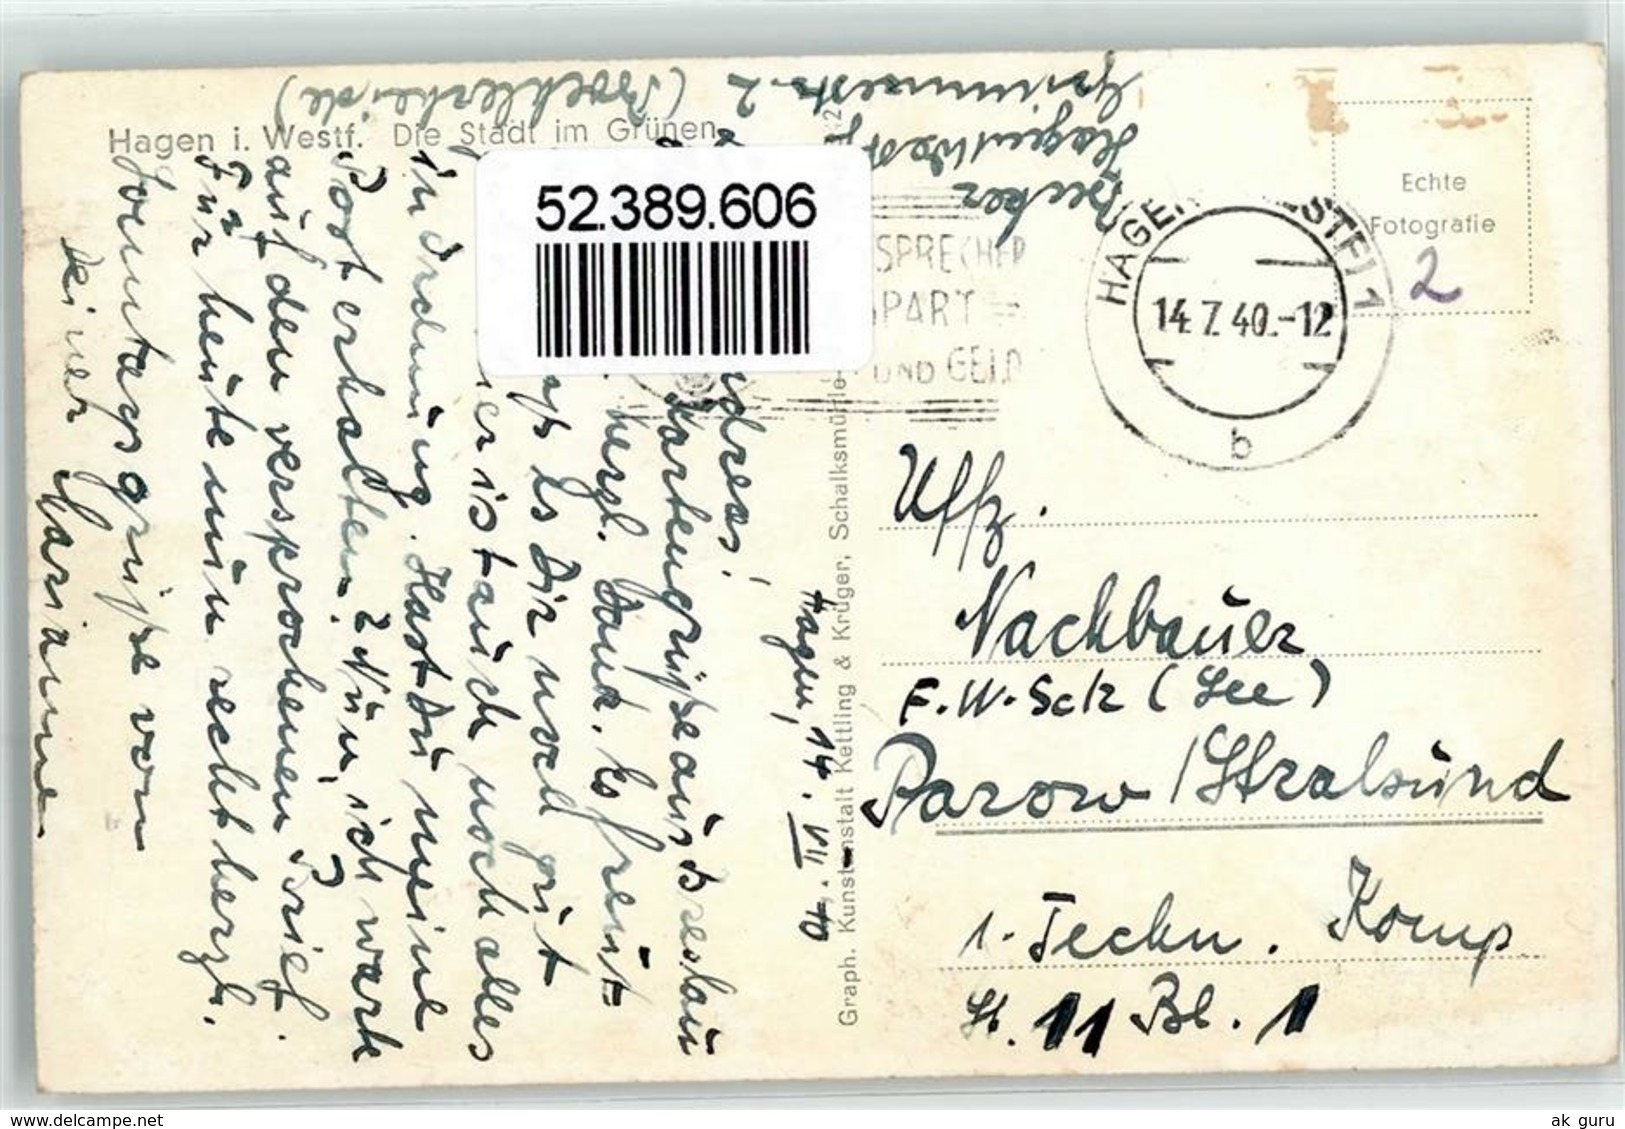 Hagen i. Westf. Die Stadt im Grünen
52.389.606
Becker
Hagen/Westf.
Grimmestr. 2
(Boehlerheide)
SPRECHER
SPART
UND GELD
HAGEN (WESTF) 1
14.7.40.-12
b
Echte
Fotografie
2
Graph. Kunstanstalt Kettling & Krüger, Schalksmühle-
Hagen, 14. VII. 40
dres!
Kartengrüße aus Breslau
herzl. Dank. Es freut
daß es Dir noch gut
Hier ist auch noch alles
in Ordnung. Hast Du meine
Post erhalten? Nun, ich warte
auf den versprochenen Brief.
Für heute nun recht herzl.
Sonntagsgrüße von
Deiner Marianne
Uffz.
Nachbauer
F.W.Sch (See)
Parow / Stralsund
1. Techn. Komp
St. 11 Bl. 1
ak guru